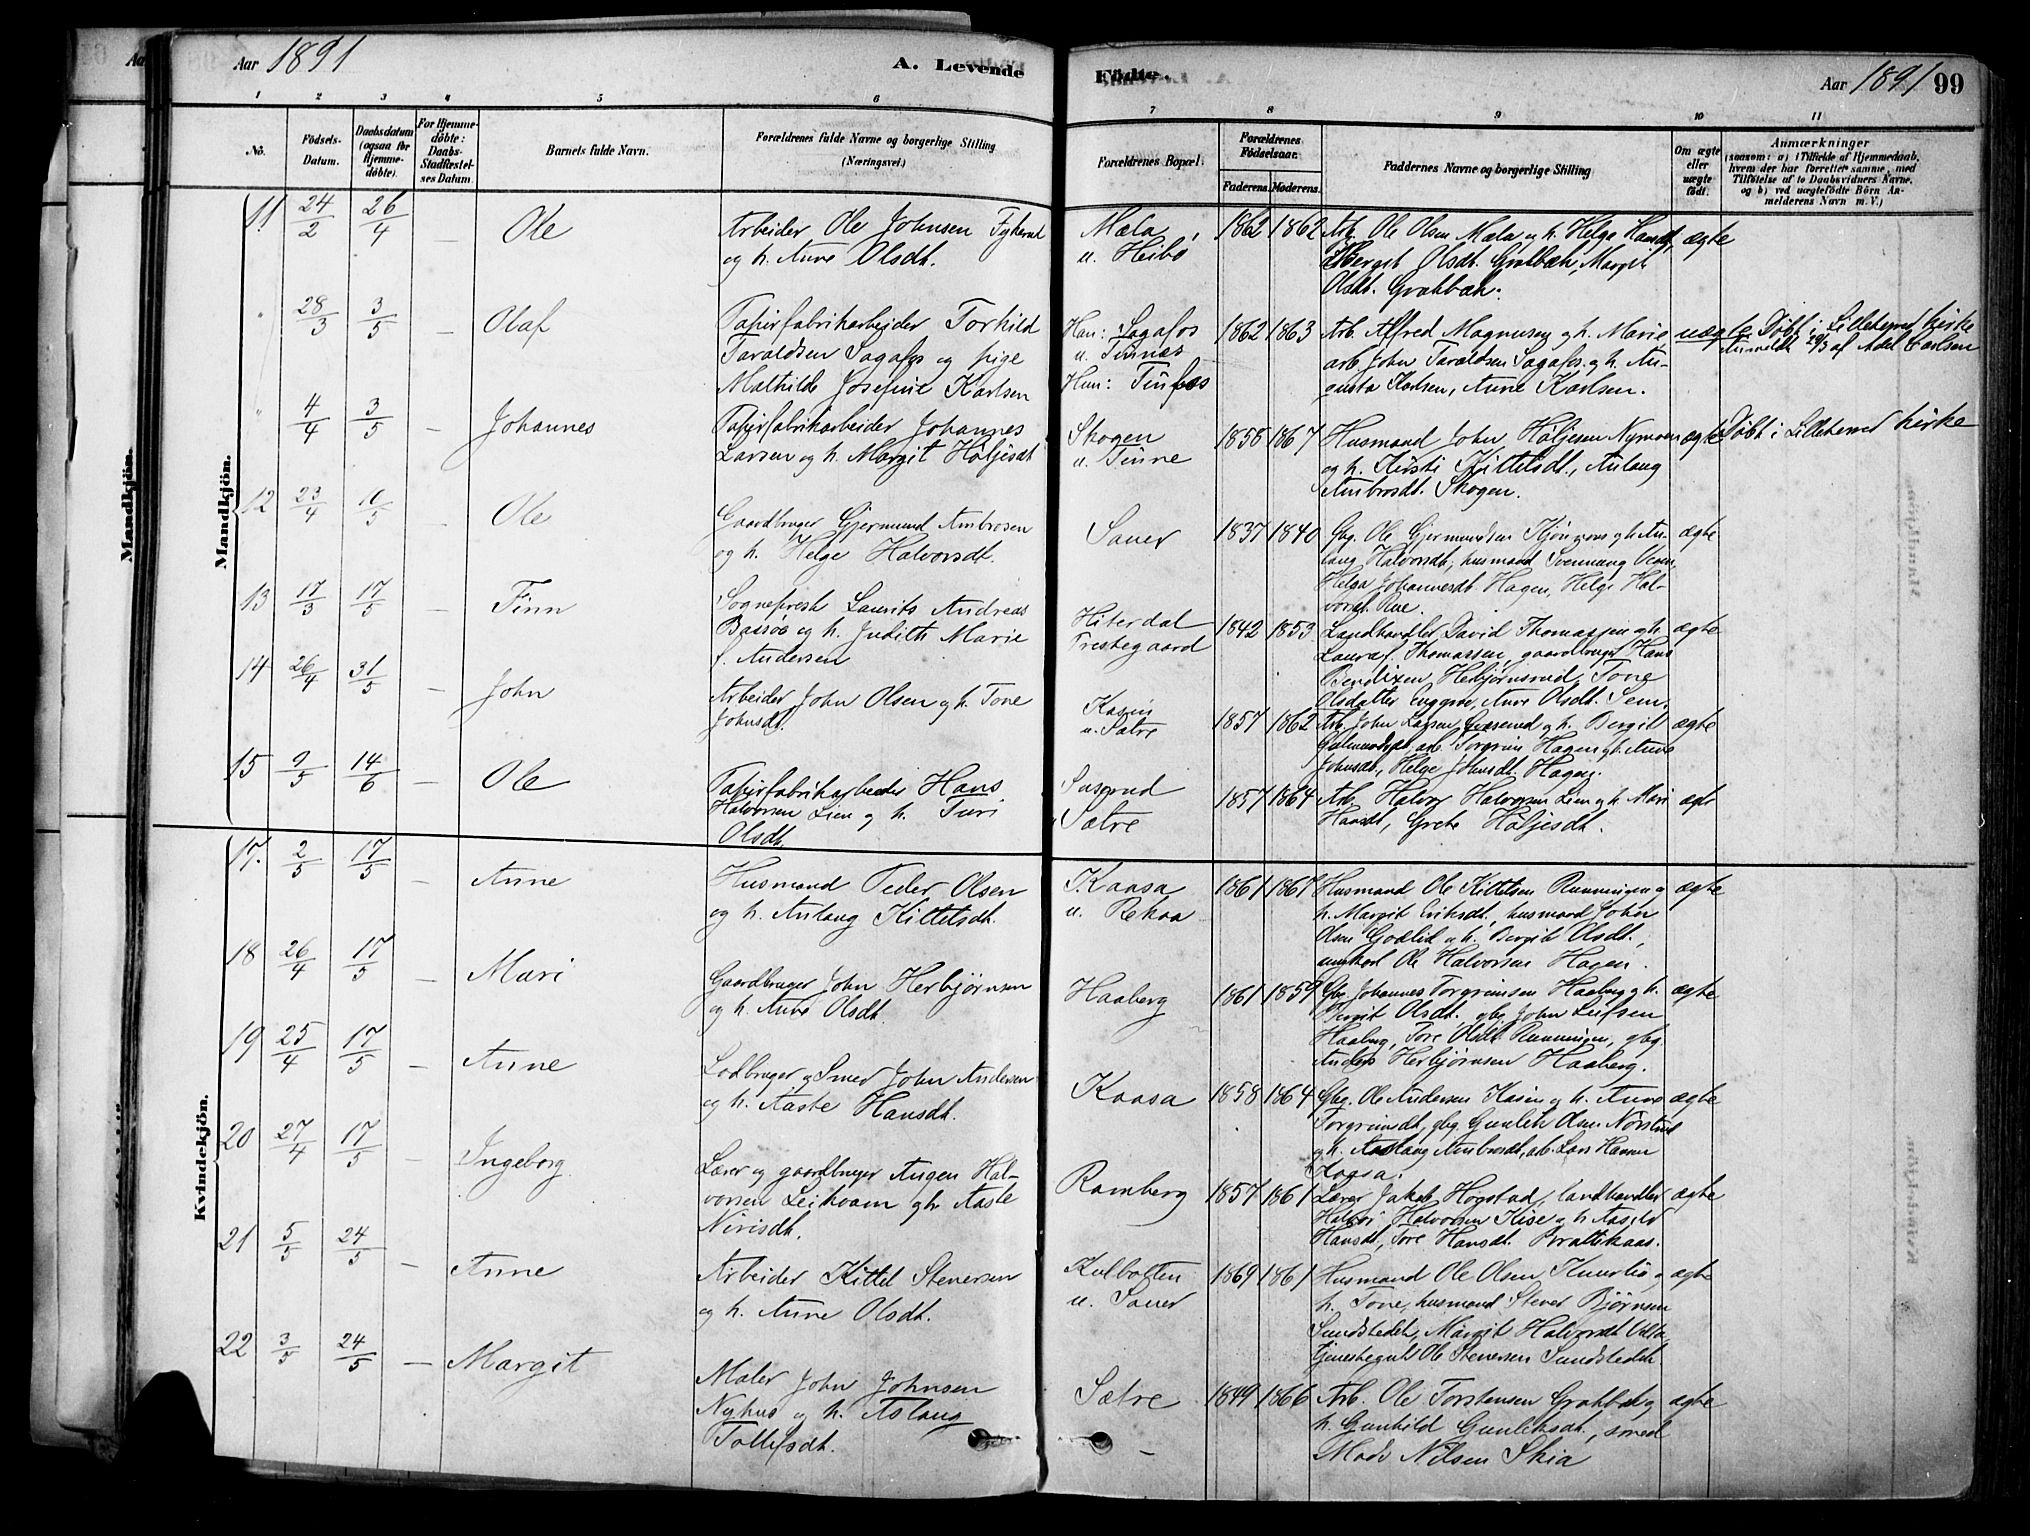 Aar 1891
A. Levende
Fødte.
Aar 1891 99
1 2 3 4 5 6 7 8 9 10 11
No.
Fødsels-Datum.
Daabsdatum (ogsaa for Hjemmedøbte).
For Hjemmedøbte: Daabs-Stadfæstelses Datum.
Barnets fulde Navn.
Forældrenes fulde Navne og borgerlige Stilling
(Næringsvei.)
Forældrenes Bopæl.
Forældrenes Fødselsaar.
Faderens. Moderens.
Faddernes Navne og borgerlige Stilling
Om ægte eller uægte født.
Anmærkninger
(saasom: a) i Tilfælde af Hjemmedaab,
hvem der har forrettet samme, med
Tilføielse af to Daabsvidners Navne,
og b) ved uægtefødte Børn An-
melderens Navn m. V.)
Mandkjön.
11 24/2 26/4 — Ole
Arbeider Ole Johnsen
og h. Anne Olsdt.
Mæla
u. Heibø
1862 1862
Arb. Ole Olsen Mæla og h. Helga Hansdt,
Olsdt. Grakbæk, Margit
Olsdt. Grakbæk.
ægte
" 28/3 3/5 — Olaf
Papirfabrikarbeider Torkild
Taraldsen Sagafos og pige
Mathilde Josefine Karlsen
Han: Sagafos
u. Tinnes
Hun: Tinfos
1862 1863
Arb. Alfred Magnusen og h. Marie
arb. John Taraldsen Sagafos og h. Au-
gusta Karlsen, Anne Karlsen.
uægte
Døbt i Lilleherred kirke
Anmeldt 29/3 af Adel Carlsen
" 4/4 3/5 — Johannes
Papirfabrikarbeider Johannes
Larsen og h. Margit Høljesdt
Skogen
u. Tinne
1856 1867
Husmand John Høljesen Nymoen
og h. Kirsti Kittelsdt., Aslaug
Ambrosdt. Skogen.
ægte
Døbt i Lilleherred kirke
12 23/4 10/5 — Ole
Gaardbruger Gjermund Ambrosen
og h. Helge Halvorsdt.
Sauer
1837 1840
Gbg. Ole Gjermundsen og h. As-
laug Halvorsdt, husmand Svennung
Helga Johannesdt. Hagen, Helge Hal-
vorsdt. Rue.
ægte
13 17/3 17/5 — Finn
Sogneprest Laurits Andreas
Bassøe og h. Judith Marie
f. Andersen
Hiterdal
Prestegaard
1842 1853
Landhandler David Thomassen og h.
Laura f. Thomassen, gaardbruger Hans
Bendixen Herbjørnsrud, Tone
Olsdatter, Anne Olsdt. Sem.
ægte
14 26/4 31/5 — John
Arbeider John Olsen og h. Tone
Johnsdt.
Kasin
u. Sætre
1857 1862
Arb. John Larsen og h. Bergit
arb. Torgrim Hagen og h. Anne
Johnsdt, Helge Johnsdt. Hagen.
ægte
15 9/5 14/6 — Ole
Papirfabrikarbeider Hans
Halvorsen Lien og h. Turi
Olsdt.
Sætre
1857 1864
Arb. Halvor Halvorsen Lien og h. Mari
Hansdt, Grete Høljesdt.
ægte
Kvindekjön.
17. 2/5 17/5 — Anne
Husmand Peder Olsen
og h. Aslaug Kittelsdt.
Kaasa
u. Rekaa
1861 1867
Husmand Ole Kittelsen Runningen og
h. Margit Eriksdt, husmand John
Olsen Godlid og h. Bergit Olsdt.,
ungkarl Ole Halvorsen Hagen.
ægte
18 26/4 17/5 — Mari
Gaardbruger John Herbjørnsen
og h. Anne Olsdt.
Haaberg
1861 1859
Gbg. Johannes Torgrimsen Haaberg og h.
Bergit Olsdt. gbg. John Leifsen
Haaberg, Tore Olsdt. Runningen, gbg.
Anders Herbjørnsen Haaberg.
ægte
19 25/4 17/5 — Anne
Lodbruger og Smed John Andersen
og h. Aaste Hansdt.
Kaasa
1858 1864
Gbg. Ole Andersen Kasin og h. Anne
Torgrimsdt, gbg. Gunleik Olsen
og h. Aaslaug Ambrosdt, arb. Lars Hansen
Kaasa.
ægte
20 27/4 17/5 — Ingeborg
Lærer og gaardbruger Augen Hal-
vorsen Leikvam og h. Aaste
Nirisdt.
Ramberg
1857 1861
Lærer Jakob Hogstad, landhandler
Halvor Halvorsen Kise og h. Aasild
Hansdt, Tore Hansdt. Brattekaas.
ægte
21 5/5 24/5 — Anne
Arbeider Kittel Stenersen
og h. Anne Olsdt.
Kulbotten
u. Sauer
1869 1861
Husmand Ole Olsen og
h. Tone, husmand Stener Bjørnsen
Sundstedet, Margit Halvorsdt
tjenestegut Ole Stenersen Sundstedet
ægte
22 3/5 24/5 — Margit
Maler John Johnsen
Nyhus og h. Aslaug
Tollefsdt.
Sætre
1849 1866
Arb. Ole Torstensen Grakbæk og
h. Gunhild Gunleiksdt, smed
Mads Nilsen Skia
ægte